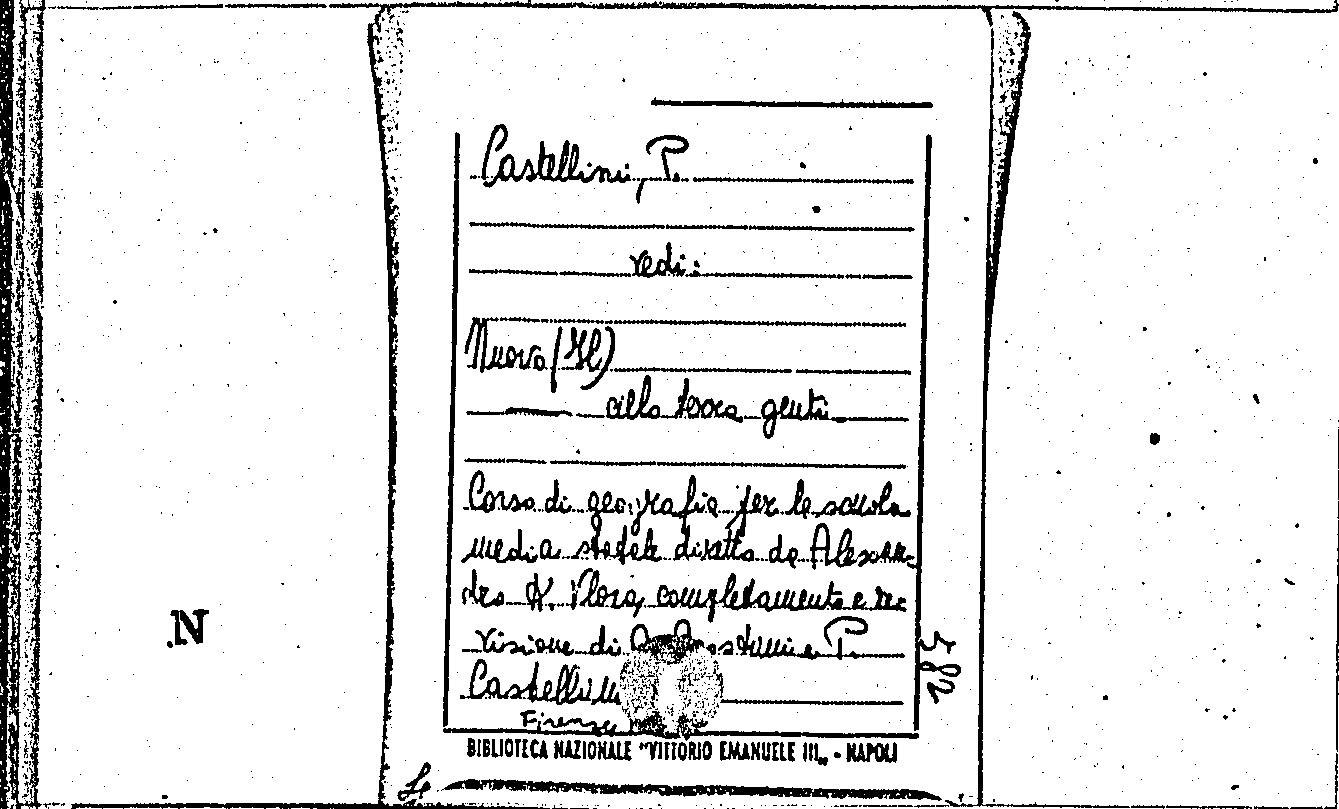 Castellini, P.
vedi:
Nuova (Il)
alla terra genti
Corso di geografia per le scuola
media statale diretto da Alessan-
dro completamento e re-
visione di P.
Castellini
Firenze
582
N
BIBLIOTECA NAZIONALE "VITTORIO EMANUELE III„ - NAPOLI